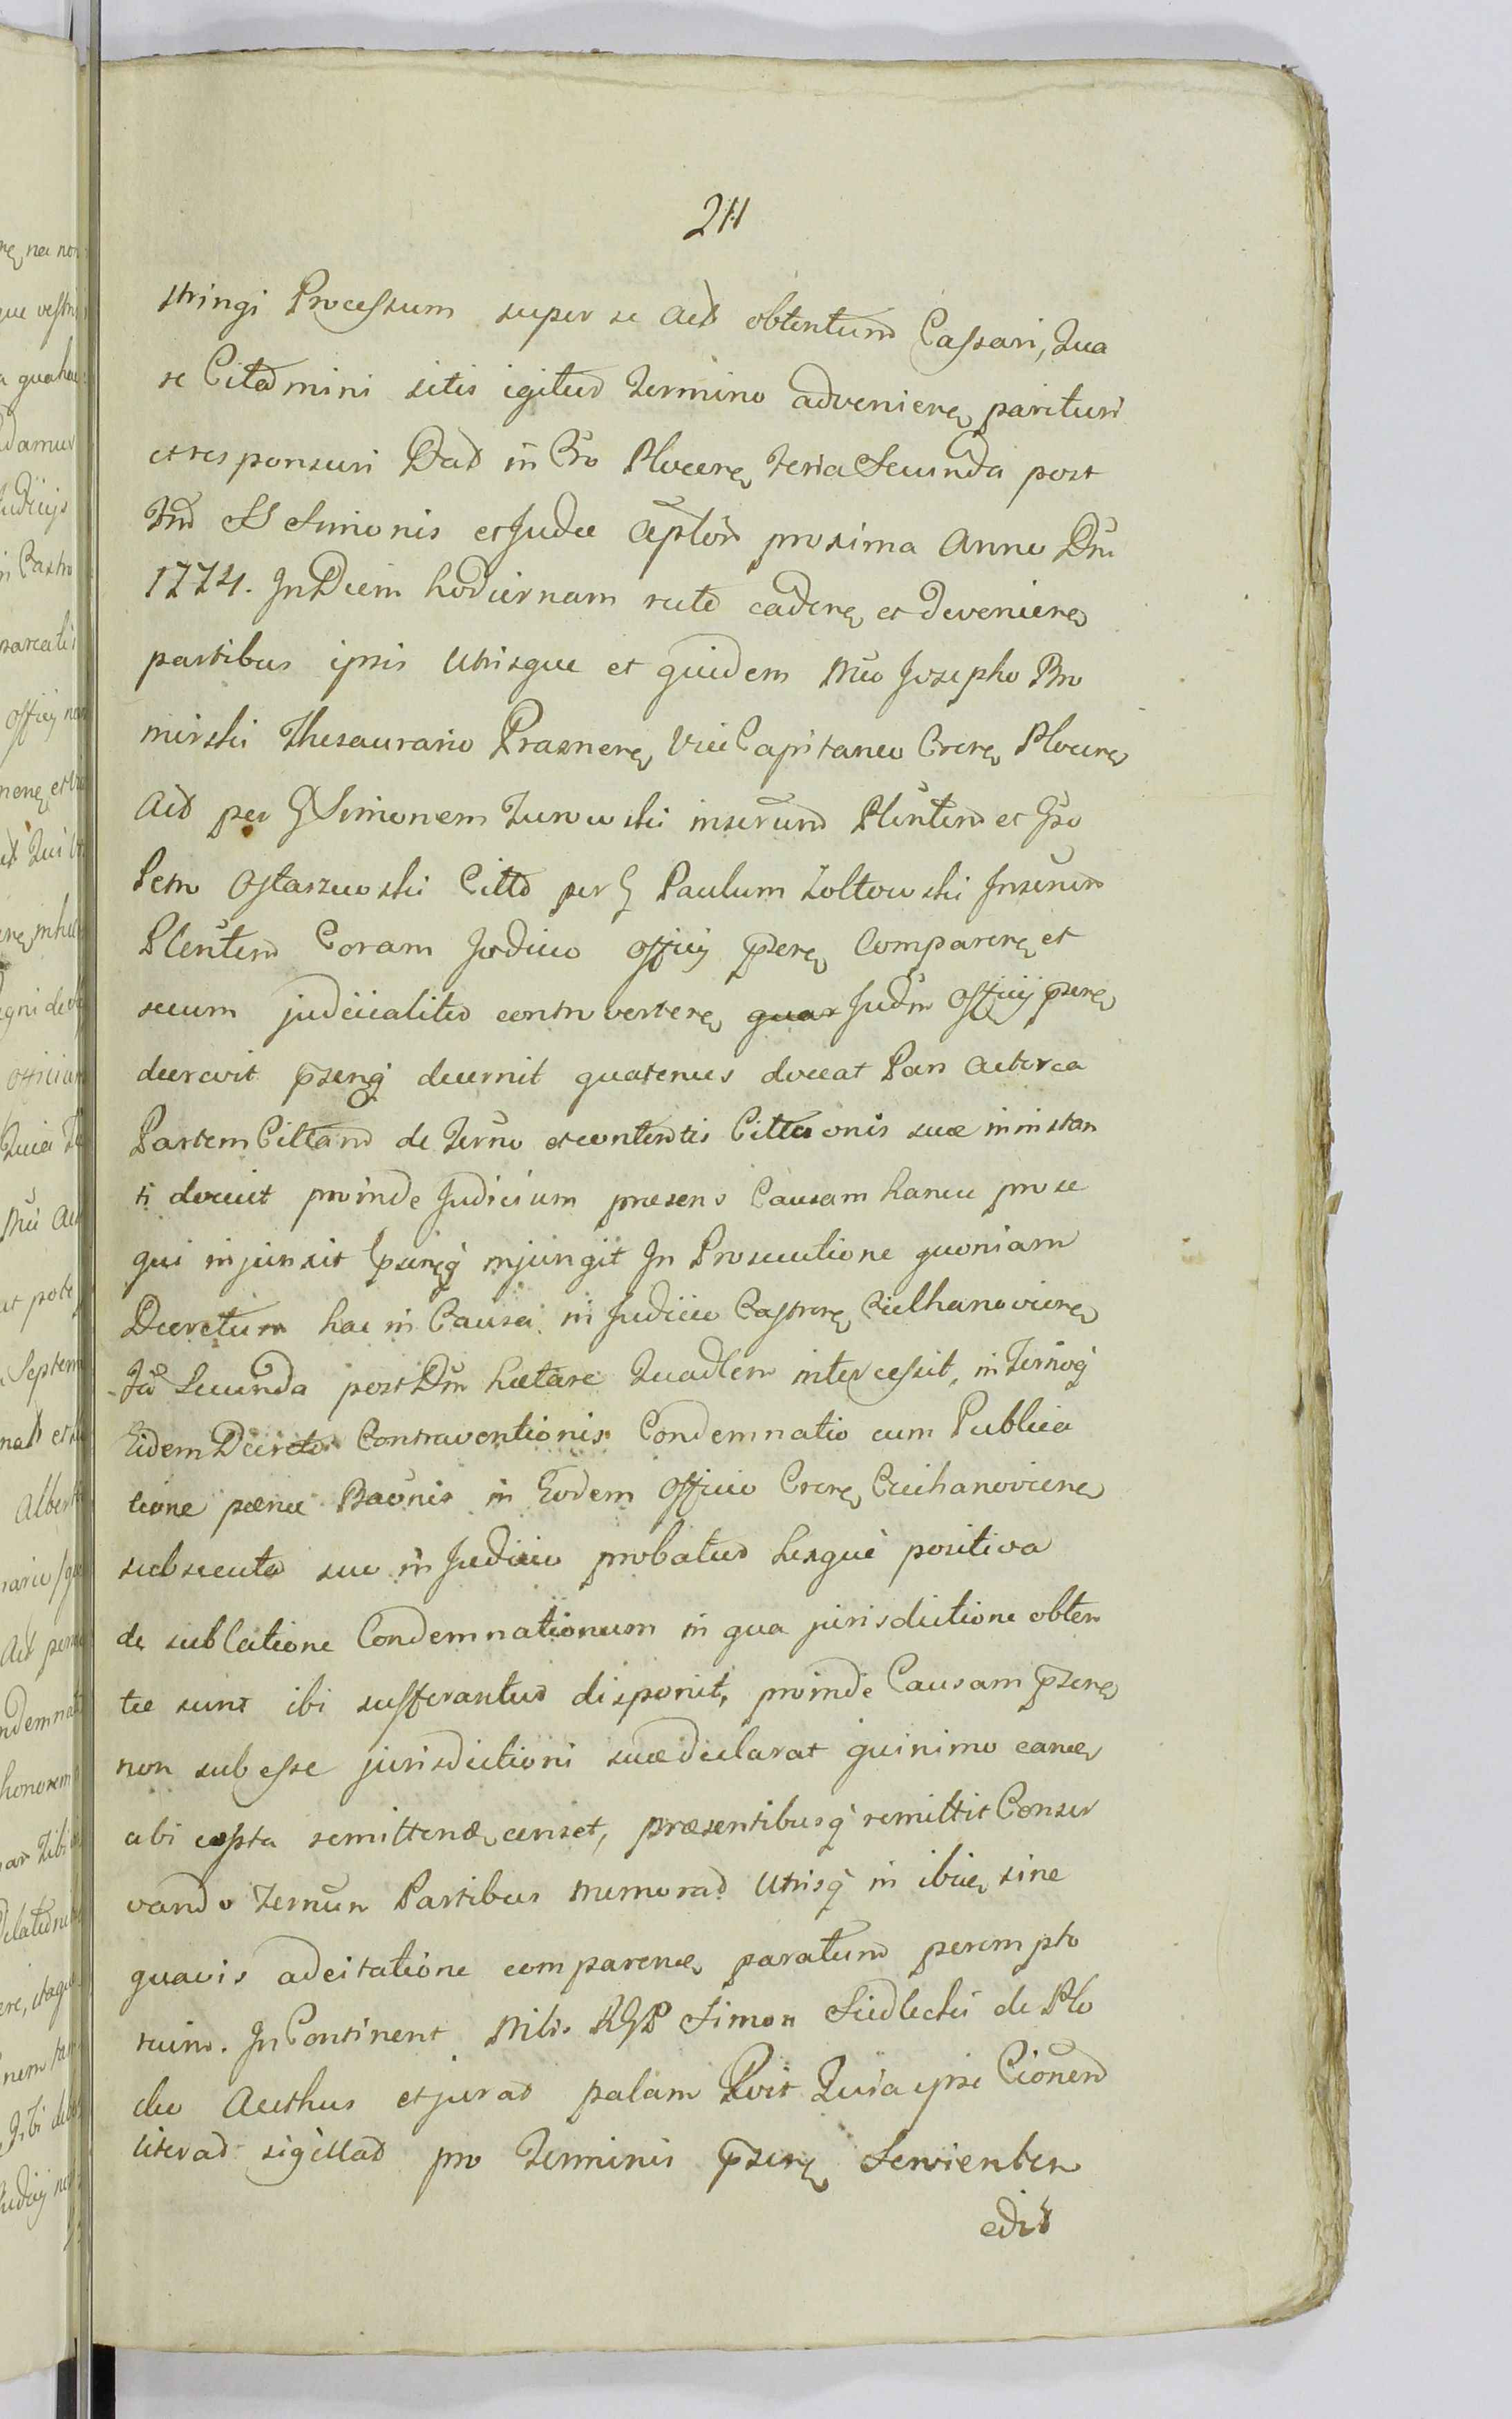 211
stringi Processum super se Actt obtentum Cassari, Qua
se Citamini sitis igitur Termino advenieñ parituri
et responsuri Datt in Cro Plocen Feria Secunda post
Fm SS Simonis et Judæ Aplor proxima Anno Dni
1774. In Diem hodiernam rite caden et devenien
partibus ipsis Utrisque et quidem Mco Josepho Bro
mirski Thesaurario Prasnen Vice Capitaneo Cren Plocen
Actt per G Simonem Turowski inserum Plentem et Gso
Petro Ostaszewski Citto per G Paulum Zoltowski Inserum
Plentem Coram Judicio Officij psen Comparen et
secum judicialiter controverten Judm Officij psen
decrevit psenq decernit quatenus doceat Pars Actorea
Partem Cittam de Terno et contentis Cittaonis suæ in instan
ti docuit proinde Judicium præsens Causam hance prose
qui injunxit psenq injungit In Prosecutione quoniam
Decretum hac in Causa in Judicio Castren Ciechanovien
Fa Secunda post Dm Lætare Quadlem intercessit, in Ternoq
Eidem Decreto Contraventionis Condemnatio cum Publica
tione pœnæ Baonis in Eodem Officio Cren Ciechanovien
subsecuta suo in Judicio probatur Lexque positiva
de sublatione Condemnationum in qua jurisdictione obten
tæ sunt ibi sufferantur disponit, proinde Causam psen
non subesse jurisdictioni suæ declarat quinimo eam
ubi cæpta remitten censet, præsentibusq remittit Conser
vando Ternum Partibus memorat Utrisq in ibi sine
quavis adcitatione comparen paratum perempto
rium. In Continent Mtis RGP Simon Siedlecki de Plo
cko Aucthus et jurat palam Rcvit Quia ipse Cionem
literat sigillat pro Terminis psen Servientem
edit